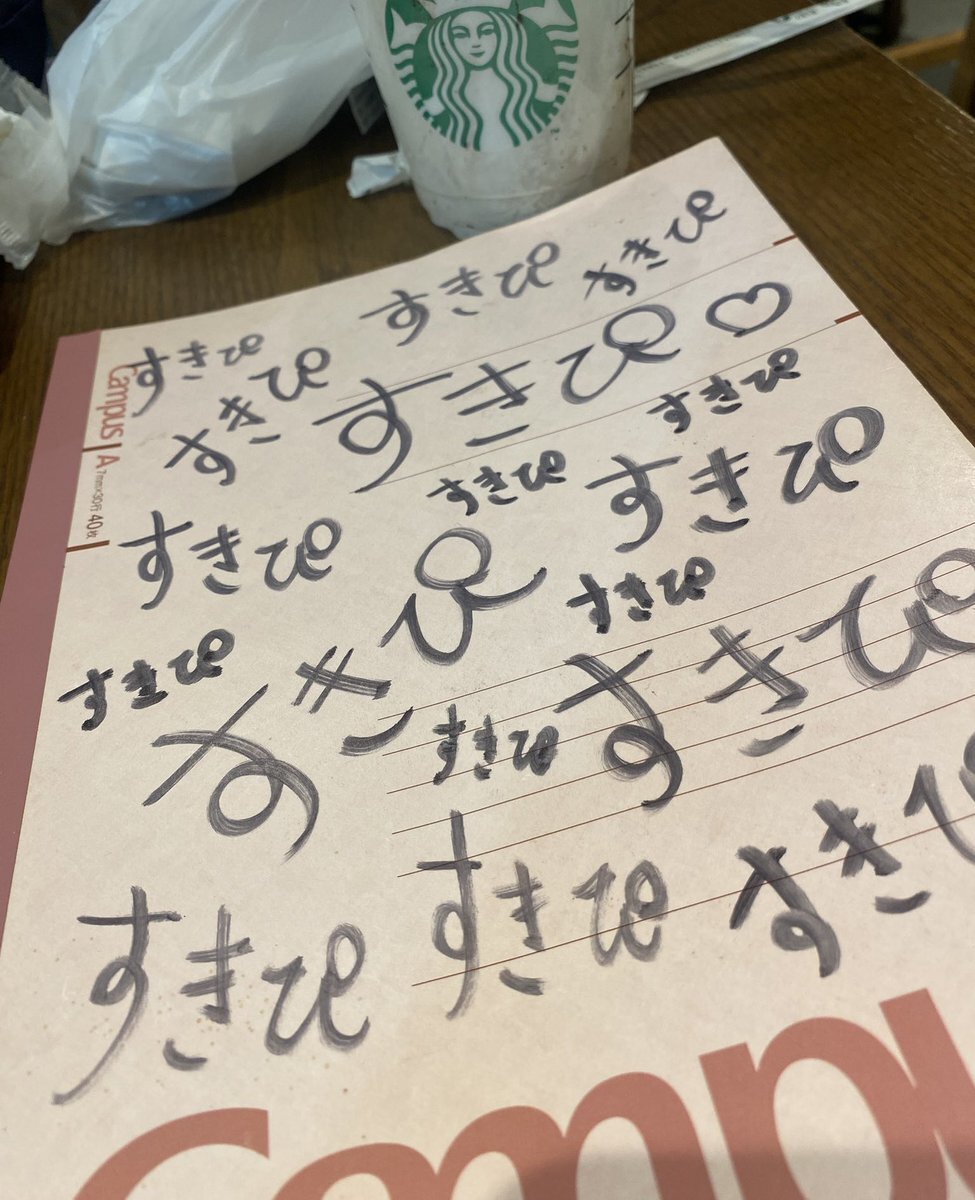 すきぴ
すきぴ
すきぴ
すきぴ
すきぴ
すきぴ♡
すきぴ
すきぴ
すきぴ
すきぴ
すきぴ
すきぴ
すきぴ
すきぴ
すきぴ
すきぴ
すきぴ
すきぴ
すき
Campus
A
7mm×30行 40枚
Campu